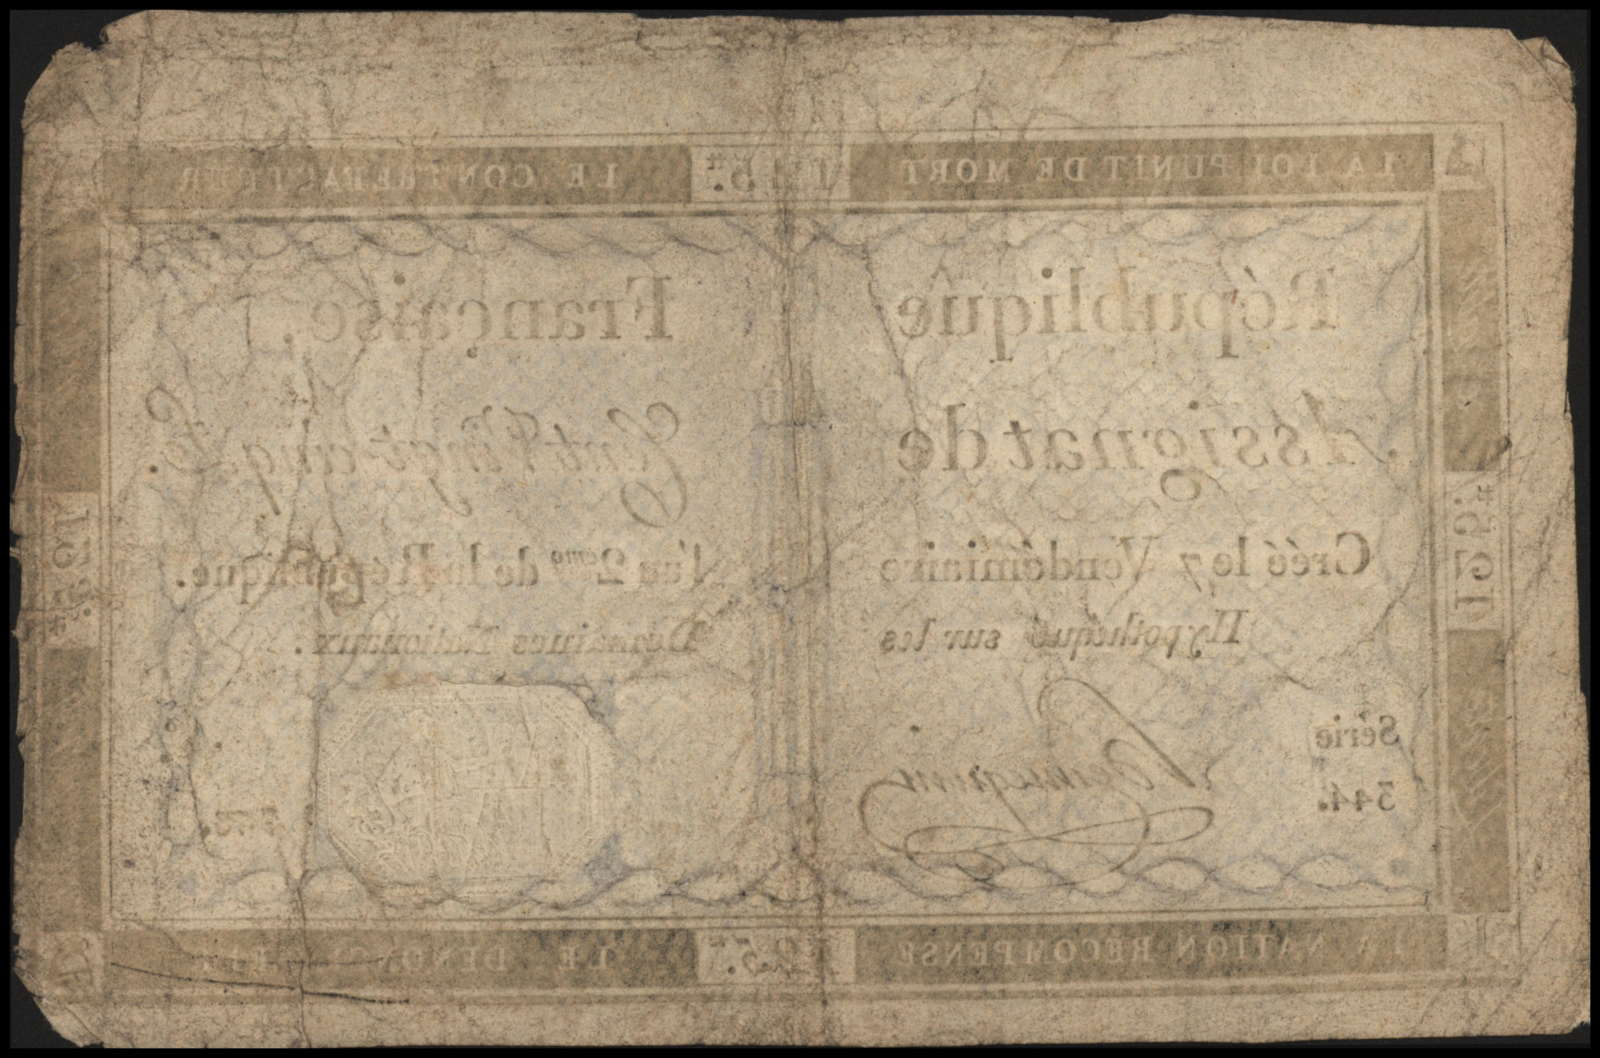 LA LOI PUNIT DE MORT 125.# LE CONTREFACTEUR
République Française.
Assignat de Cent Vingt-cinq. L.
Créé le 7 Vendémiaire l'an 2ème de la République.
Hypothéqué sur les Domaines Nationaux.
Série
344.
125.#
125.#
LA NATION RÉCOMPENSE 125. LE DÉNONCIATEUR